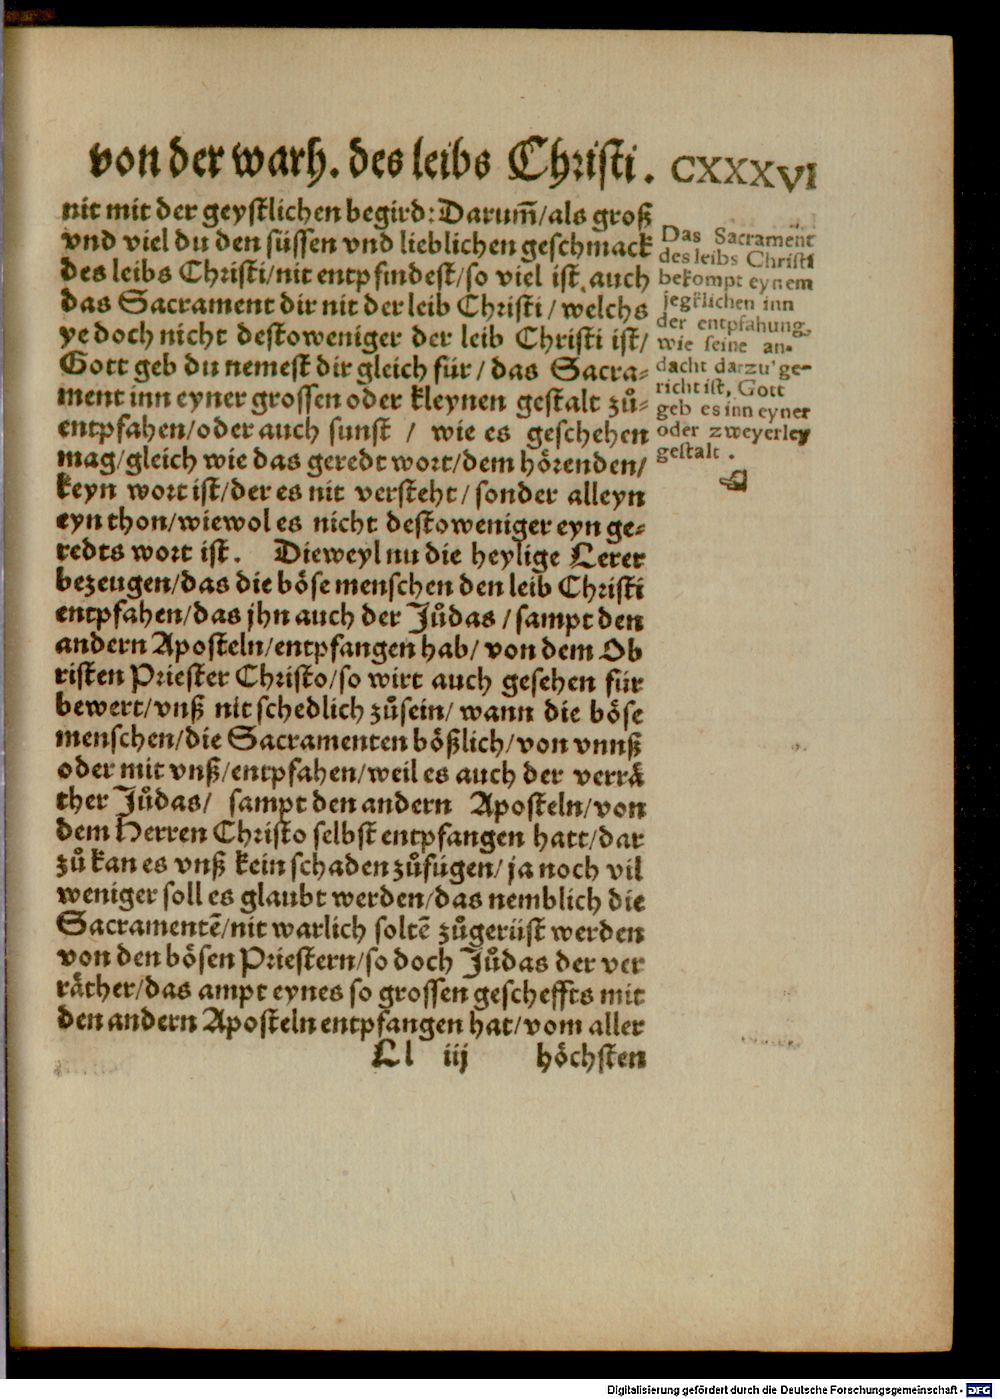 von der warh. des leibs Christi. CXXXVI
nit mit der geystlichen begird: Darum̃/als groß
vnd viel du den süssen vnd lieblichen geschmack
des leibs Christi/nit entpfindest/so viel ist auch
das Sacrament dir nit der leib Christi/welchs
ye doch nicht destoweniger der leib Christi ist/
Gott geb du nemest dir gleich für/das Sacra-
ment inn eyner grossen oder kleynen gestalt zů-
entpfahen/oder auch sunst / wie es geschehen
mag/gleich wie das geredt wort/dem hörenden/
keyn wort ist/der es nit versteht/sonder alleyn
eyn thon/wiewol es nicht destoweniger eyn ge-
redts wort ist. Dieweyl nu die heylige Lerer
bezeugen/das die böse menschen den leib Christi
entpfahen/das jhn auch der Jůdas/sampt den
andern Aposteln/entpfangen hab/von dem Ob
risten Priester Christo/so wirt auch gesehen für
bewert/vnß nit schedlich zůsein/wann die böse
menschen/die Sacramenten bößlich/von vnnß
oder mit vnß/entpfahen/weil es auch der verrä
ther Jůdas/ sampt den andern Aposteln/von
dem Herren Christo selbst entpfangen hatt/dar
zů kan es vnß kein schaden zůfügen/ja noch vil
weniger soll es glaubt werden/das nemblich die
Sacramentẽ/nit warlich soltẽ zůgerüst werden
von den bösen Priestern/so doch Jůdas der ver
räther/das ampt eynes so grossen gescheffts mit
den andern Aposteln entpfangen hat/vom aller
Ll iij höchsten
Das Sacrament
des leibs Christi
bekompt eynem
jegklichen inn
der entpfahung,
wie seine an-
dacht darzu ge-
richt ist, Gott
geb es inn eyner
oder zweyerley
gestalt.
Digitalisierung gefördert durch die Deutsche Forschungsgemeinschaft - DFG